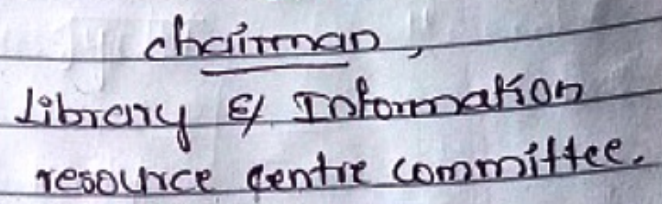 chairman,
Library & Information
resource centre committee.